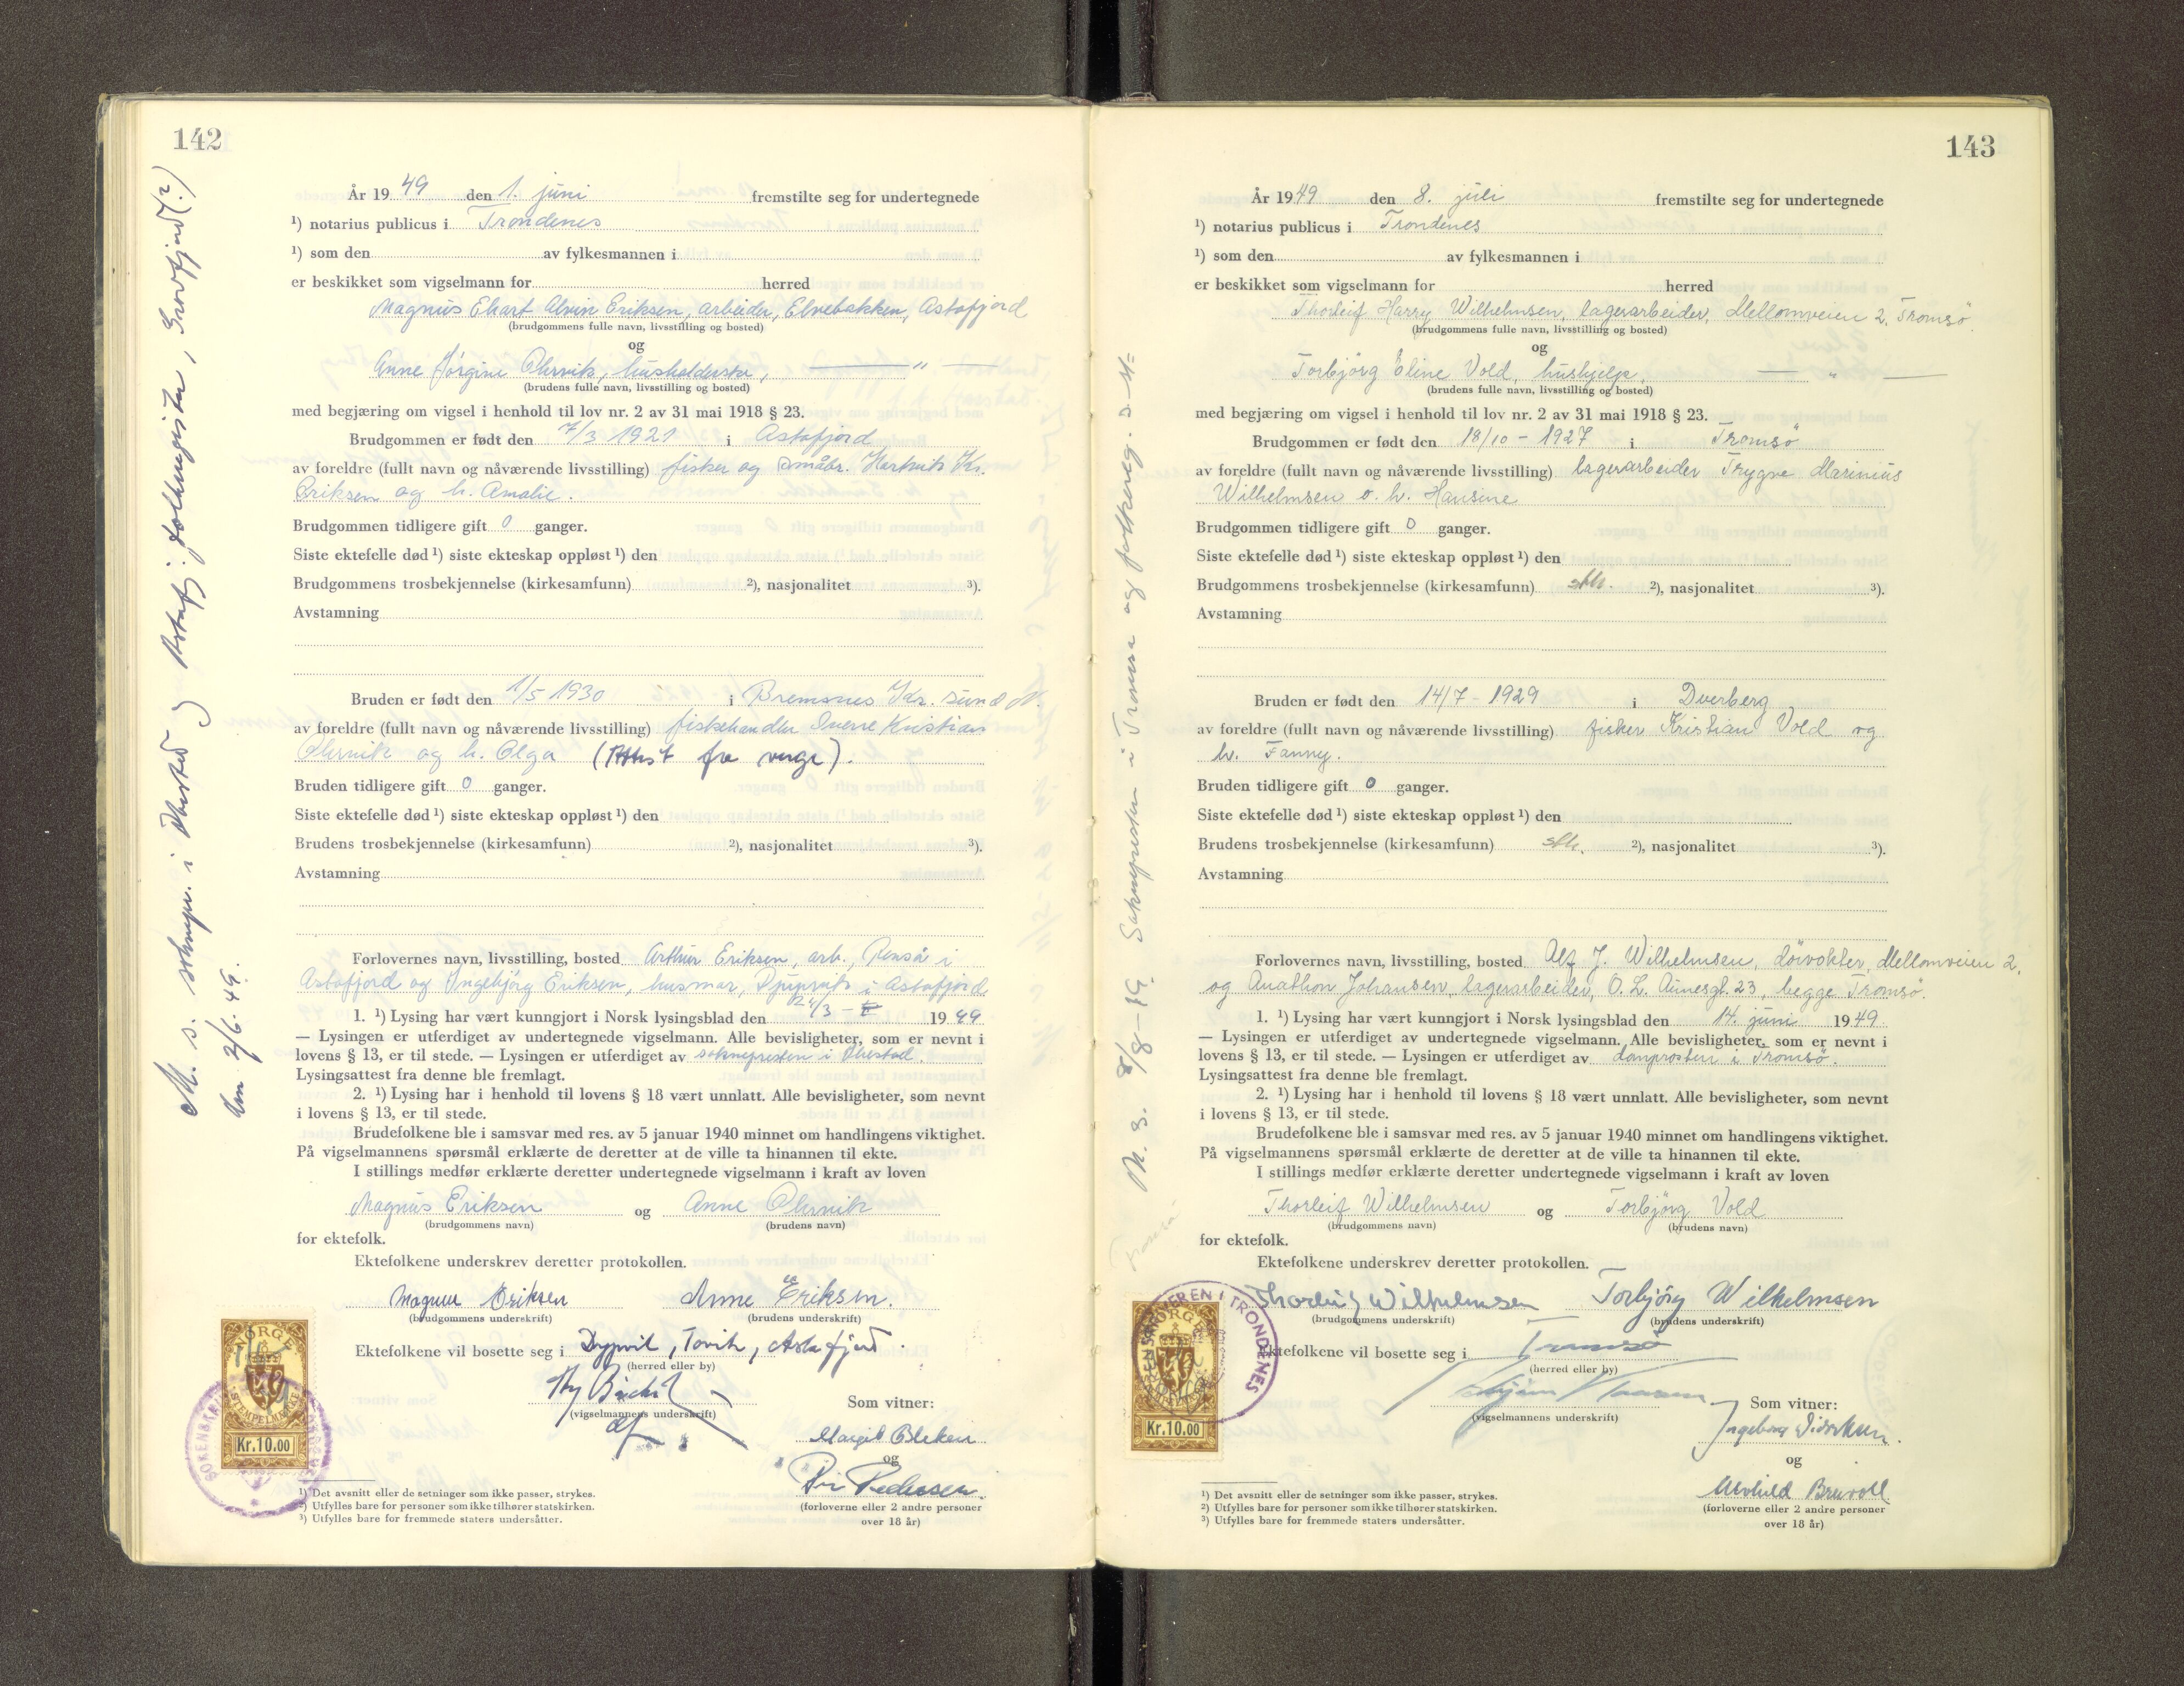 142
År 19 49 den 1. juni fremstilte seg for undertegnede
¹) notarius publicus i Trondenes
¹) som den av fylkesmannen i
er beskikket som vigselmann for herred
Magnus Ekart Alvin Eriksen, arbeider, Elvebakken, Astafjord
(brudgommens fulle navn, livsstilling og bosted)
og
Anne Jörgine Ohrvik, husholderske, — " —
(brudens fulle navn, livsstilling og bosted)
med begjæring om vigsel i henhold til lov nr. 2 av 31 mai 1918 § 23.
Brudgommen er født den 7/3 1921 i Astafjord
av foreldre (fullt navn og nåværende livsstilling) fisker og småbr. Hartvik Kr.
Eriksen og h. Amalie.
Brudgommen tidligere gift 0 ganger.
Siste ektefelle død ¹) siste ekteskap oppløst ¹) den
Brudgommens trosbekjennelse (kirkesamfunn) ²), nasjonalitet ³).
Avstamning
Bruden er født den 1/5 1930 i Bremsnes Kr. sund N.
av foreldre (fullt navn og nåværende livsstilling) fiskehandler Sverre Kristian
Ohrvik og h. Olga (Attest fra verge).
Bruden tidligere gift 0 ganger.
Siste ektefelle død ¹) siste ekteskap oppløst ¹) den
Brudens trosbekjennelse (kirkesamfunn) ²), nasjonalitet ³).
Avstamning
Forlovernes navn, livsstilling, bosted Arthur Eriksen, arb., Renså i
Astafjord og Ingebjörg Eriksen, husmor, Djupvik i Astafjord
1. ¹) Lysing har vært kunngjort i Norsk lysingsblad den 24/3 - 19 49
— Lysingen er utferdiget av undertegnede vigselmann. Alle bevisligheter, som er nevnt i
lovens § 13, er til stede. — Lysingen er utferdiget av soknepresten i Ibestad.
Lysingsattest fra denne ble fremlagt.
2. ¹) Lysing har i henhold til lovens § 18 vært unnlatt. Alle bevisligheter, som nevnt
i lovens § 13, er til stede.
Brudefolkene ble i samsvar med res. av 5 januar 1940 minnet om handlingens viktighet.
På vigselmannens spørsmål erklærte de deretter at de ville ta hinannen til ekte.
I stillings medfør erklærte deretter undertegnede vigselmann i kraft av loven
Magnus Eriksen og Anne Ohrvik
(brudgommens navn) (brudens navn)
for ektefolk.
Ektefolkene underskrev deretter protokollen.
Magnus Eriksen Anne Eriksen.
(brudgommens underskrift) (brudens underskrift)
Ektefolkene vil bosette seg i Dypvik, Tovik, Astafjord.
(herred eller by)
(vigselmannens underskrift)
Som vitner:
Margit Bleken
og
Pedersen.
(forloverne eller 2 andre personer
over 18 år)
NORGE
STEMPELMERKE
Kr.10.00
¹) Det avsnitt eller de setninger som ikke passer, strykes.
²) Utfylles bare for personer som ikke tilhører statskirken.
³) Utfylles bare for fremmede staters undersåtter.
M. s. soknepr. i Ibestad og Astafj. folkeregister, Grovfjord (2)
2/6. 49.
143
År 19 49 den 8. juli fremstilte seg for undertegnede
¹) notarius publicus i Trondenes
¹) som den av fylkesmannen i
er beskikket som vigselmann for herred
Thorleif Harry Wilhelmsen, lagerarbeider, Mellomveien 2, Tromsö
(brudgommens fulle navn, livsstilling og bosted)
og
Torbjörg Eline Vold, hushjelp, — " —
(brudens fulle navn, livsstilling og bosted)
med begjæring om vigsel i henhold til lov nr. 2 av 31 mai 1918 § 23.
Brudgommen er født den 18/10 - 1927 i Tromsö
av foreldre (fullt navn og nåværende livsstilling) lagerarbeider Trygve Marinius
Wilhelmsen o. h. Hansine
Brudgommen tidligere gift 0 ganger.
Siste ektefelle død ¹) siste ekteskap oppløst ¹) den
Brudgommens trosbekjennelse (kirkesamfunn) stk. ²), nasjonalitet ³).
Avstamning
Bruden er født den 14/7 - 1929 i Dverberg
av foreldre (fullt navn og nåværende livsstilling) fisker Kristian Vold og
h. Fanny.
Bruden tidligere gift 0 ganger.
Siste ektefelle død ¹) siste ekteskap oppløst ¹) den
Brudens trosbekjennelse (kirkesamfunn) stk. ²), nasjonalitet ³).
Avstamning
Forlovernes navn, livsstilling, bosted Alf J. Wilhelmsen, dörvokter, Mellomveien 2,
og Anathon Johansen, lagerarbeider, O. L. Aunesgt. 23, begge Tromsö.
1. ¹) Lysing har vært kunngjort i Norsk lysingsblad den 14. juni 19 49
— Lysingen er utferdiget av undertegnede vigselmann. Alle bevisligheter, som er nevnt i
lovens § 13, er til stede. — Lysingen er utferdiget av domprosten i Tromsö.
Lysingsattest fra denne ble fremlagt.
2. ¹) Lysing har i henhold til lovens § 18 vært unnlatt. Alle bevisligheter, som nevnt
i lovens § 13, er til stede.
Brudefolkene ble i samsvar med res. av 5 januar 1940 minnet om handlingens viktighet.
På vigselmannens spørsmål erklærte de deretter at de ville ta hinannen til ekte.
I stillings medfør erklærte deretter undertegnede vigselmann i kraft av loven
Thorleif Wilhelmsen og Torbjörg Vold
(brudgommens navn) (brudens navn)
for ektefolk.
Ektefolkene underskrev deretter protokollen.
Thorleif Wilhelmsen Torbjörg Wilhelmsen
(brudgommens underskrift) (brudens underskrift)
Ektefolkene vil bosette seg i Tromsö
(herred eller by)
(vigselmannens underskrift)
Som vitner:
Ingeborg
og
Alvhild Bruvoll
(forloverne eller 2 andre personer
over 18 år)
SORENSKRIVEREN I TRONDENES
NORGE
Kr.10.00
¹) Det avsnitt eller de setninger som ikke passer, strykes.
²) Utfylles bare for personer som ikke tilhører statskirken.
³) Utfylles bare for fremmede staters undersåtter.
M. s. 8/8-49. Soknepresten i Tromsø og folkereg. s. st=